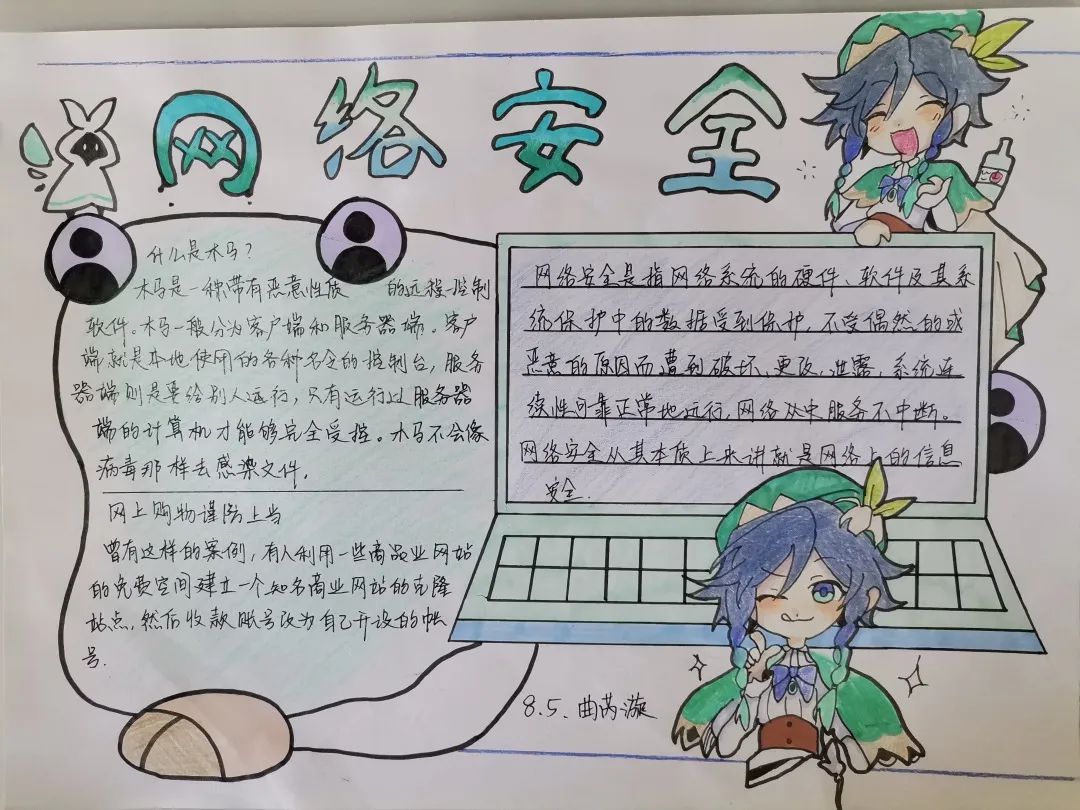 网络安全
什么是木马?
木马是一种带有恶意性质 的远程控制
软件。木马一般分为客户端和服务器端。客户
端就是本地使用的各种命令的控制台，服务
器端则是要给别人运行，只有运行过服务器
端的计算机才能够完全受控。木马不会像
病毒那样去感染文件.
网上购物谨防上当
曾有这样的案例，有人利用一些商品业网站
的免费空间建立一个知名商业网站的克隆
站点，然后收款账号改为自己开设的帐
号.
网络安全是指网络系统的硬件、软件及其系
统保护中的数据受到保护，不受偶然的或
恶意的原因而遭到破坏、更改、泄露，系统连
续性可靠正常地运行，网络从中服务不中断。
网络安全从其本质上来讲就是网络上的信息
安全.
8.5.曲芮漩